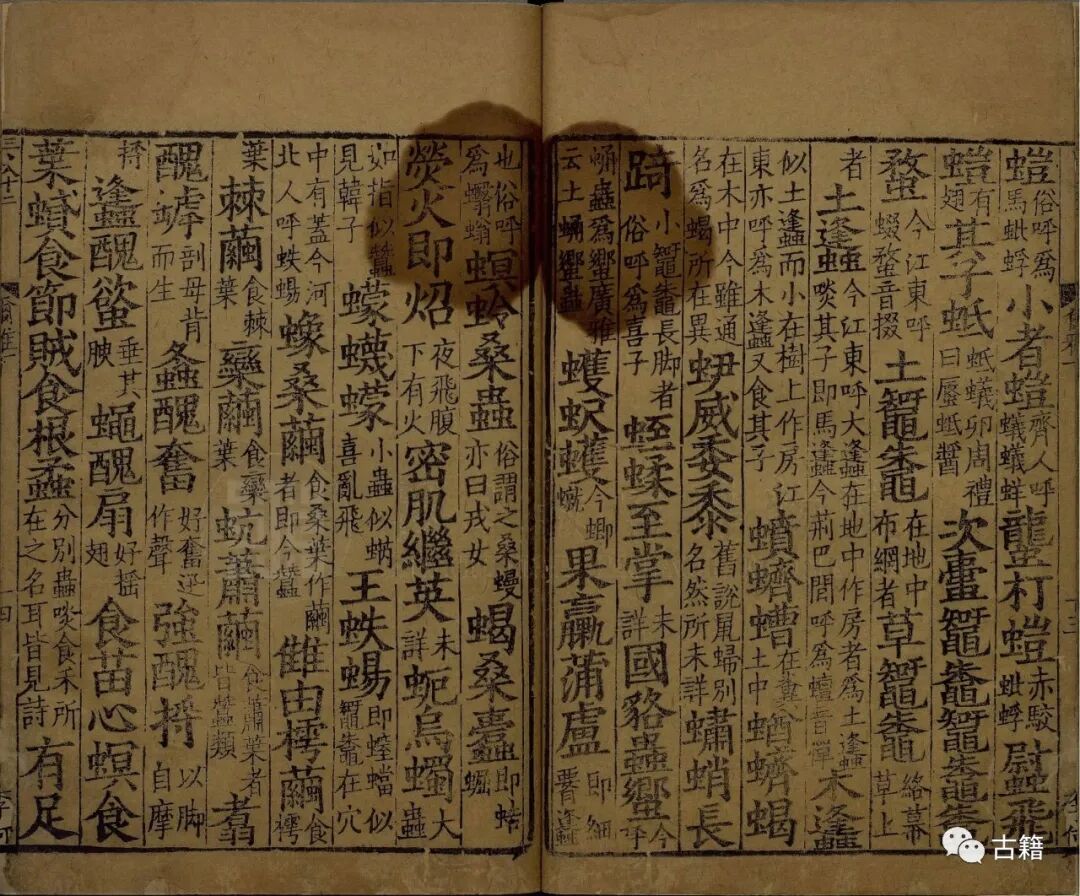 螘俗呼爲馬蚍蜉小者螘齊人呼蟻蟻蛘蠪朾螘赤駮蚍蜉螱飛
螘有翅其子蚳蚳蟻卵周禮曰蜃蚳醬次蟗鼅鼄鼅鼄鼄
蝥今江東呼蝃蝥音掇土鼅鼄在地中布網者草鼅鼄絡幕草上
者土蠭今江東呼大蠭在地中作房者爲土蠭啖其子即馬蠭今荊巴間呼爲蟺音憚木蠭
似土蠭而小在樹上作房江東亦呼爲木蠭又食其子蟦蠐螬在糞土中蝤蠐蝎
在木中今雖通名爲蝎所在異蛜威委黍舊說鼠婦別名然所未詳蠨蛸長
踦小鼅鼄長脚者俗呼爲喜子蛭蝚至掌未詳國貉蟲蠁今呼
蛹蟲爲蠁廣雅云土蛹蠁蟲蠖蚇蠖今蝍果蠃蒲盧即細蠭
也俗呼爲蠮螉螟蛉桑蟲俗謂之桑蟃亦曰戎女蝎桑蠹即蛣
熒火即炤夜飛腹下有火密肌繼英未詳蚅烏蠋大蟲
如指似蠶見韓子蠓蠛蠓小蟲似蜹喜亂飛王蛈蜴即螲蟷似鼅鼄在穴
中有蓋今河北人呼蛈蜴蟓桑繭食桑葉作繭者即今蠶雔由樗繭食樗
葉棘繭食棘葉欒繭食欒葉蚢蕭繭食蕭葉者皆蠶類翥
醜罅剖母背而生螽醜奮好奮迅作聲強醜捋以脚自摩
捋蠭醜螸垂其腴蠅醜扇好搖翅食苗心螟食
葉蟘食節賊食根蟊分別蟲啖食禾所在之名耳皆見詩有足
古籍